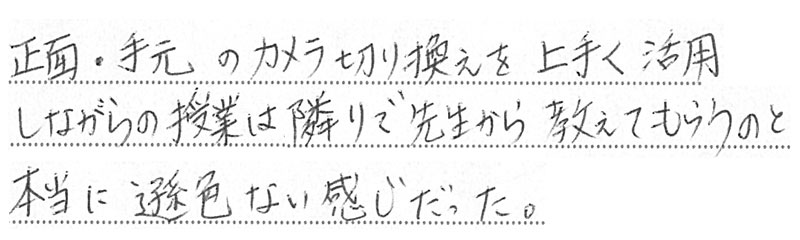 正面・手元のカメラ切り換えを上手く活用
しながらの授業は隣りで先生から教えてもらうのと
本当に遜色ない感じだった。